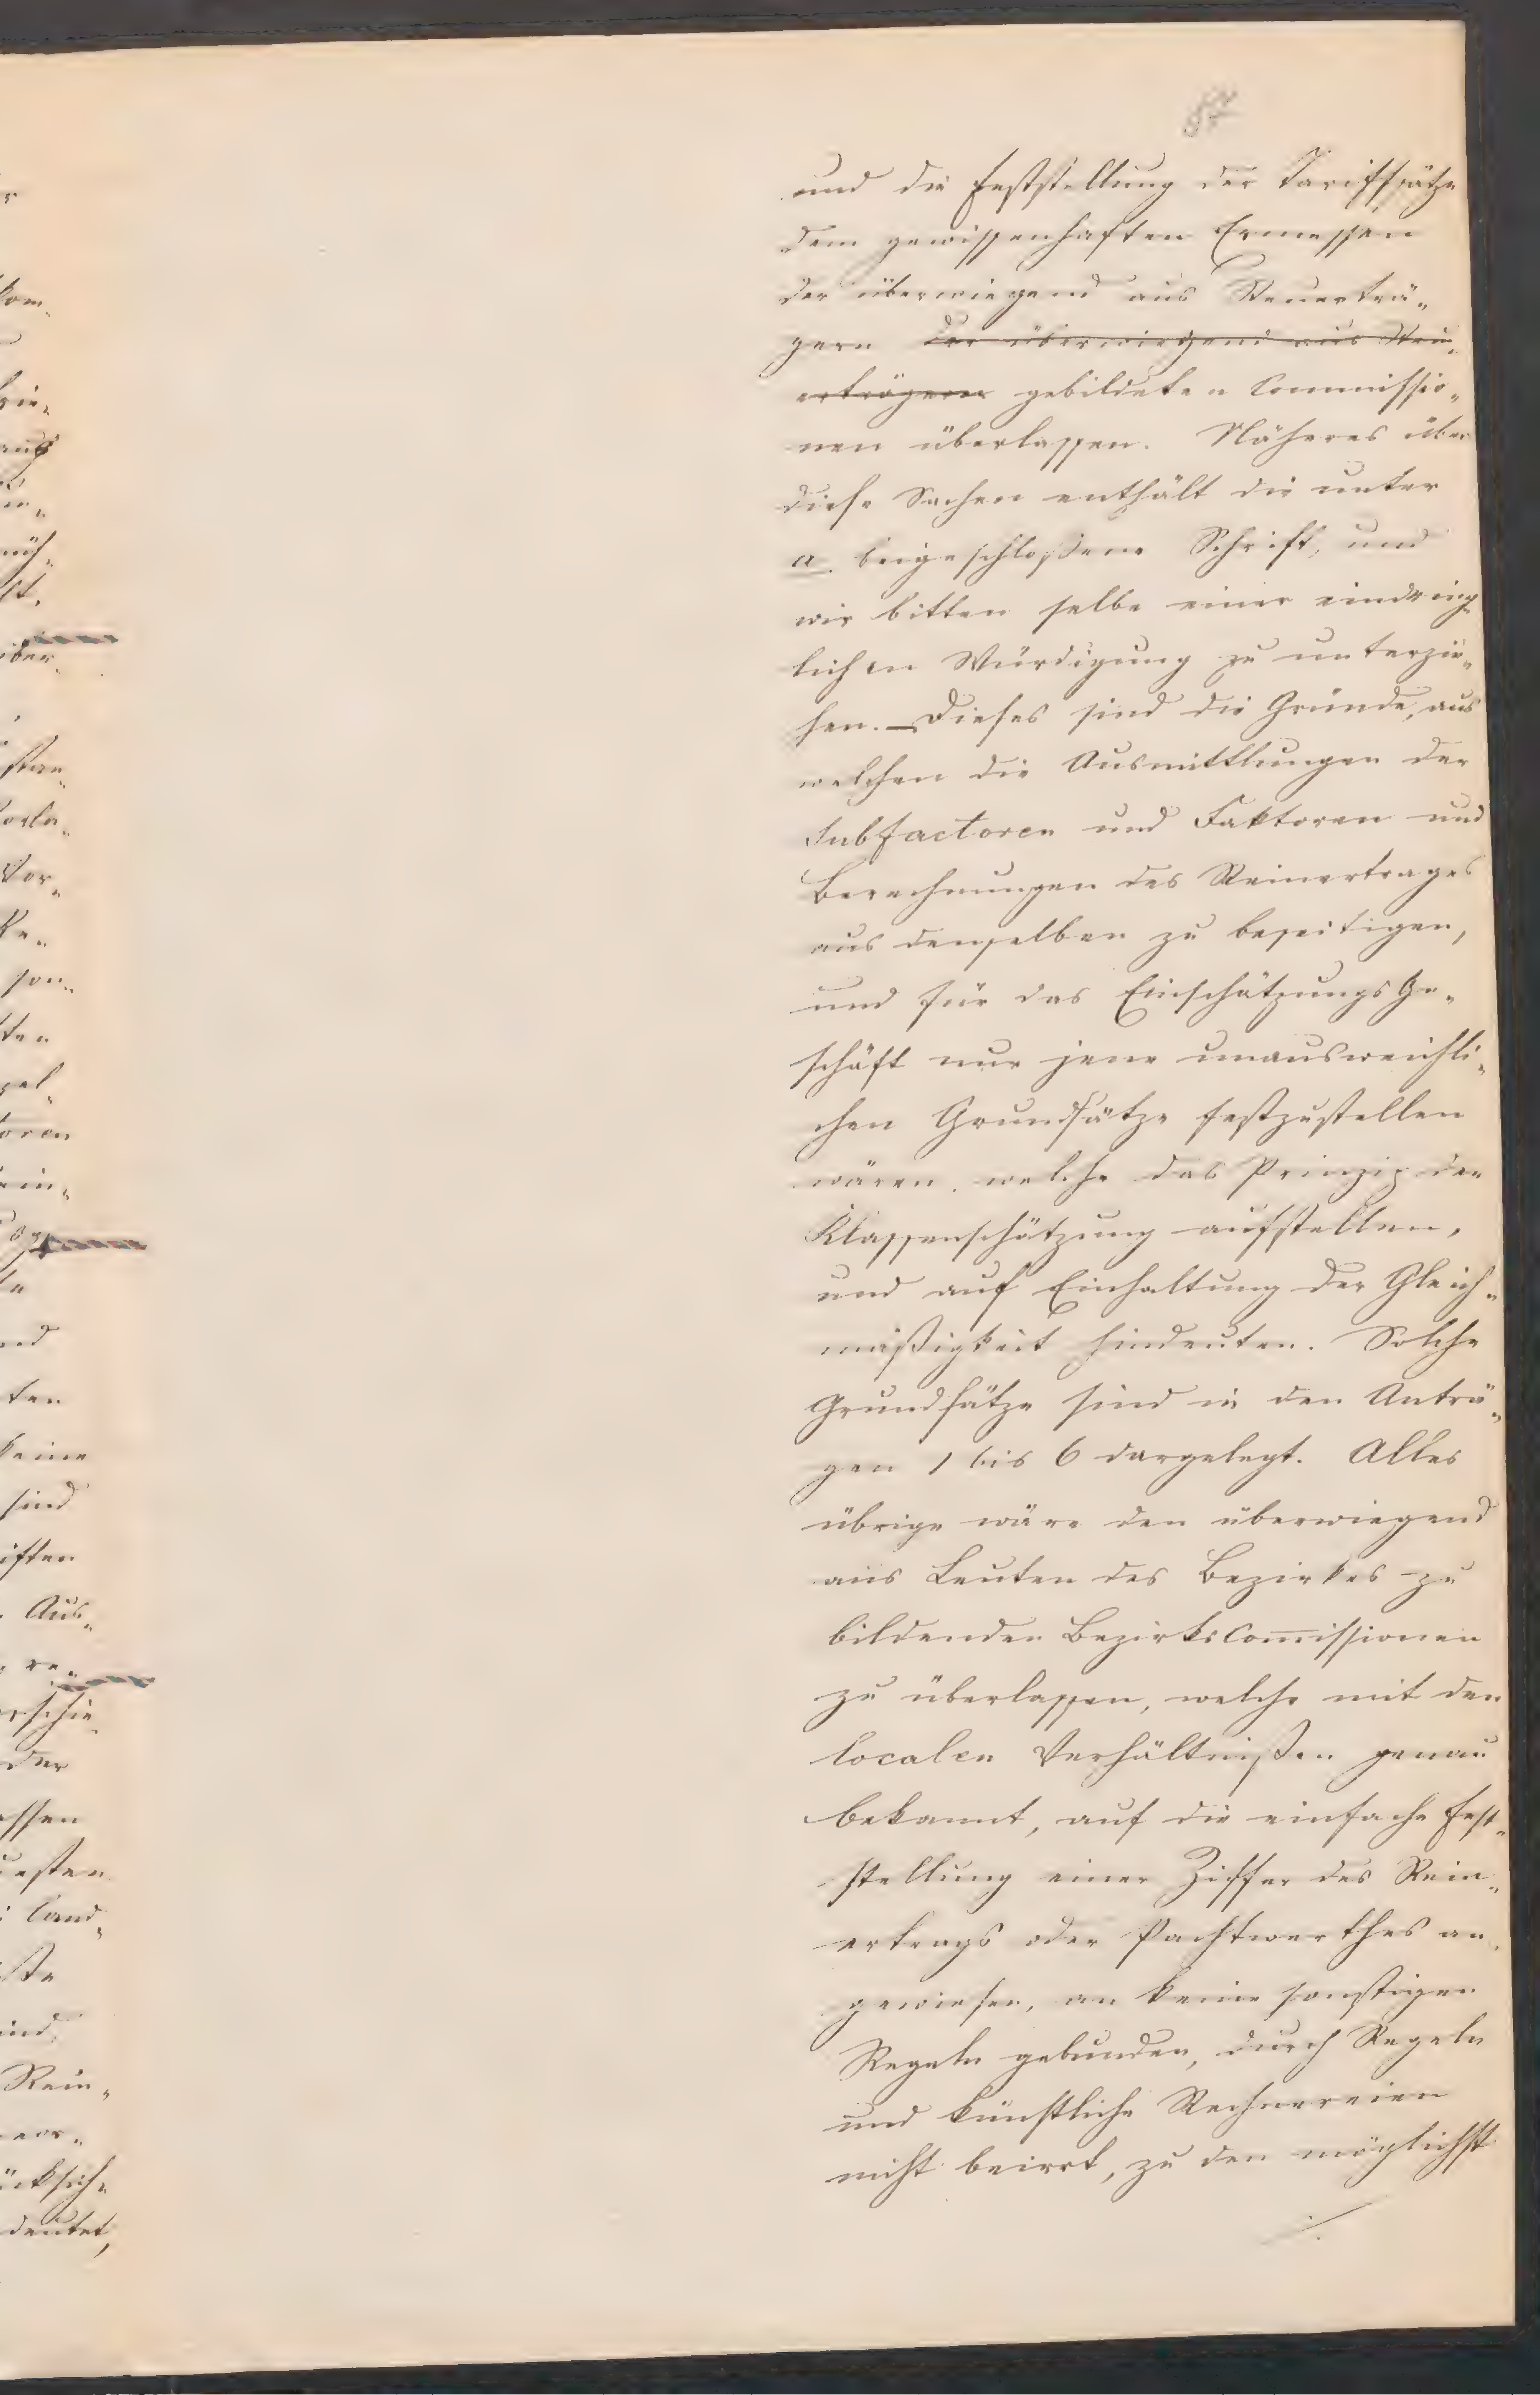 und die Feststellung der Tariffsätze
dem gewissenhaften Ermessen
der überwiegend aus Steuerträ„
gern der überwiegend aus Steu„
erträgern gebildeten Commissio„
nen überlassen. Näheres über
diese Sachen enthält die unter
a. beigeschloßene Schrift, und
wir bitten selbe einer eindring„
lichen Würdigung zu unterzie„
hen. — Dieses sind die Gründe, aus
welchen die Ausmittlungen der
Subfactoren und Faktoren und
Berechnungen des Reinertrages
aus denselben zu beseitigen,
und für das EinschätzungsGe„
schäft nur jene unausweichli„
chen Grundsätze festzustellen
wären, welche das Prinzip der
Klassenschätzung aufstellen,
und auf Einhaltung der Gleich„
mäßigkeit hindeuten. Solche
Grundsätze sind in den Anträ„
gen 1 bis 6 dargelegt. Alles
übrige wäre den überwiegend
aus Leuten des Bezirkes zu
bildenden BezirksCom̅issionen
zu überlassen, welche mit den
localen Verhältnißen genau
bekannt, auf die einfache Fest„
stellung einer Ziffer des Rein„
ertrags oder Pachtwerthes an„
gewiesen, an keine sonstigen
Regeln gebunden, durch Regeln
und künstliche Rechnereien
nicht beirrt, zu den möglichst
./.